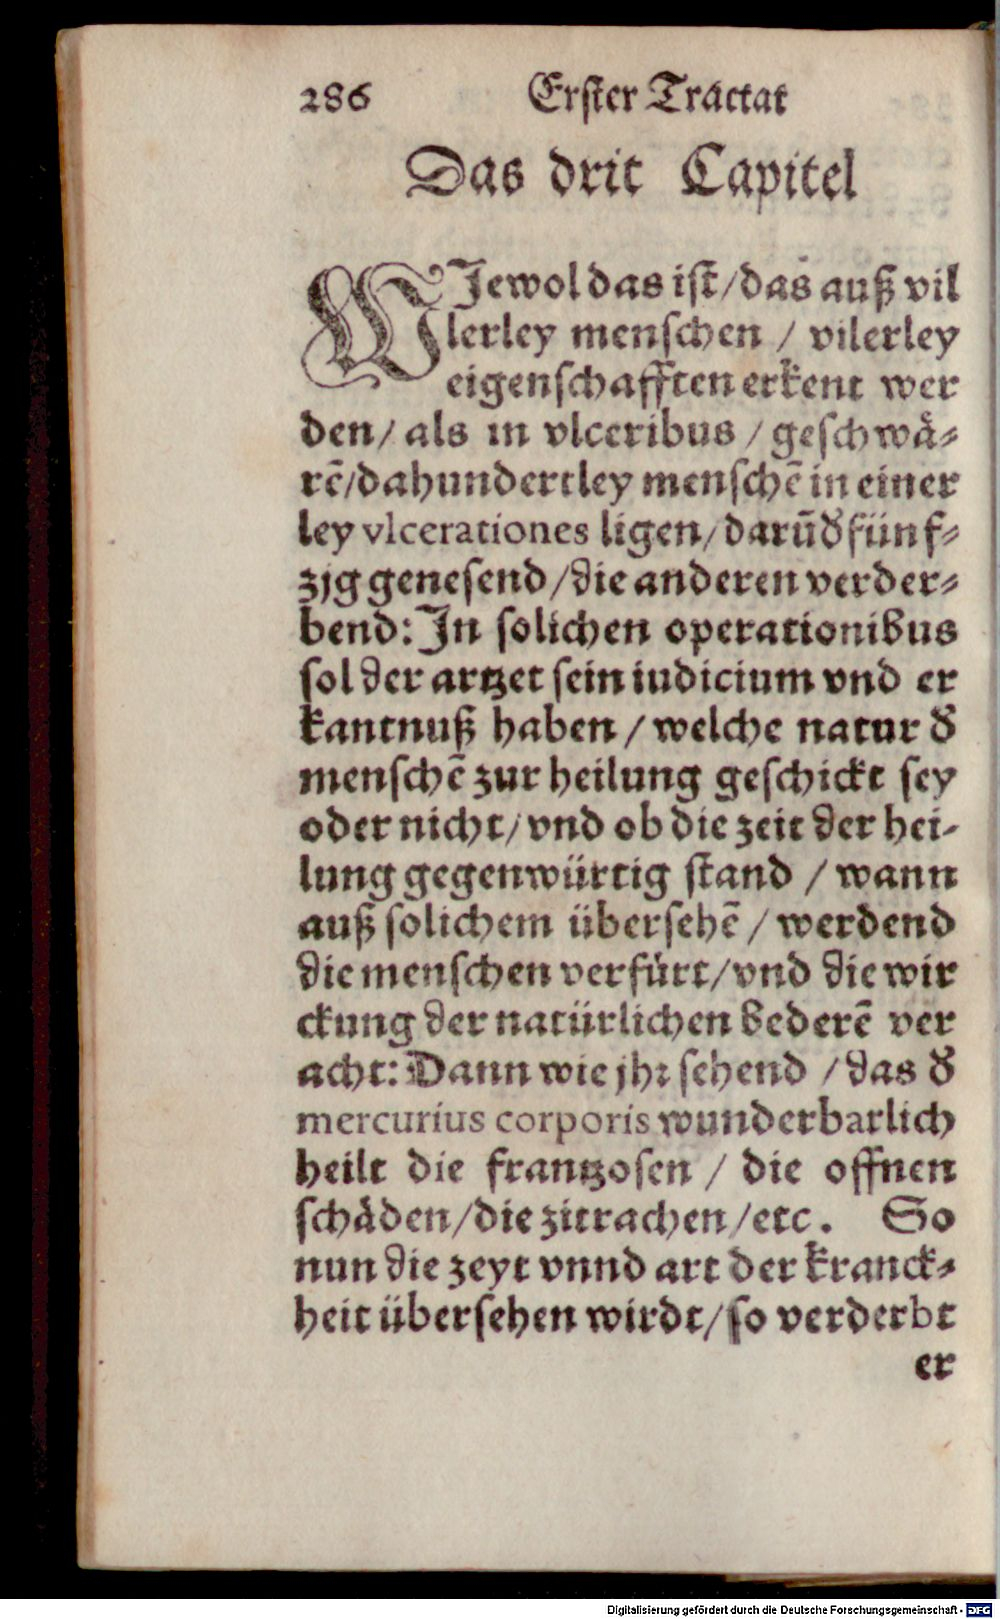 286 Erster Tractat
Das drit Capitel
WJewol das ist/das auß vil
lerley menschen / vilerley
eigenschafften erkent wer
den/ als in vlceribus / geschwå⸗
rē/da hundertley menschē in einer
ley vlcerationes ligen/darūđ fünf⸗
zjg genesend/die anderen verder⸗
bend: Jn solichen operationibus
sol der artzet sein iudicium vnd er
kantnuß haben / welche natur đ
menschē zur heilung geschickt sey
oder nicht/ vnd ob die zeit der hei-
lung gegenwürtig stand / wann
auß solichem übersehē / werdend
die menschen verfürt/vnd die wir
ckung der natürlichen bederē ver
acht: Dann wie jhr sehend / das đ
mercurius corporis wunderbarlich
heilt die frantzosen / die offnen
schåden/die zitrachen/etc. So
nun die zeyt vnnd art der kranck⸗
heit übersehen wirdt/so verderbt
er
Digitalisierung gefördert durch die Deutsche Forschungsgemeinschaft - DFG